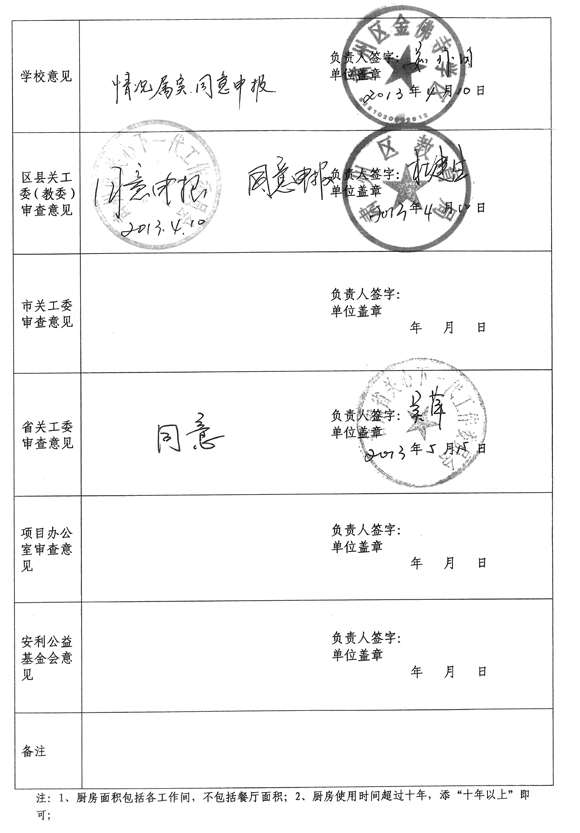 学校意见
情况属实.同意申报
负责人签字:
单位盖章
2013年4月10日
区县关工
委(教委)
审查意见
同意申报
2013.4.10
同意申报
负责人签字:
单位盖章
2013年4月10日
市关工委
审查意见
负责人签字:
单位盖章
年 月 日
省关工委
审查意见
同意
负责人签字:
单位盖章
2013年5月15日
项目办公
室审查意
见
负责人签字:
单位盖章
年 月 日
安利公益
基金会意
见
负责人签字:
单位盖章
年 月 日
备注
注: 1、厨房面积包括各工作间,不包括餐厅面积; 2、厨房使用时间超过十年,添“十年以上”即
可;